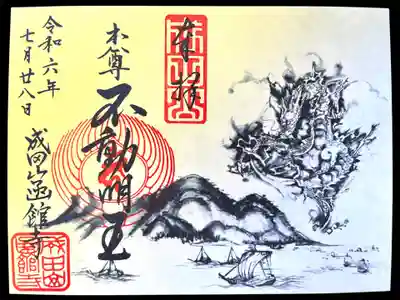 奉拝
本尊
不動明王
令和六年
七月廿八日
成田山函館寺